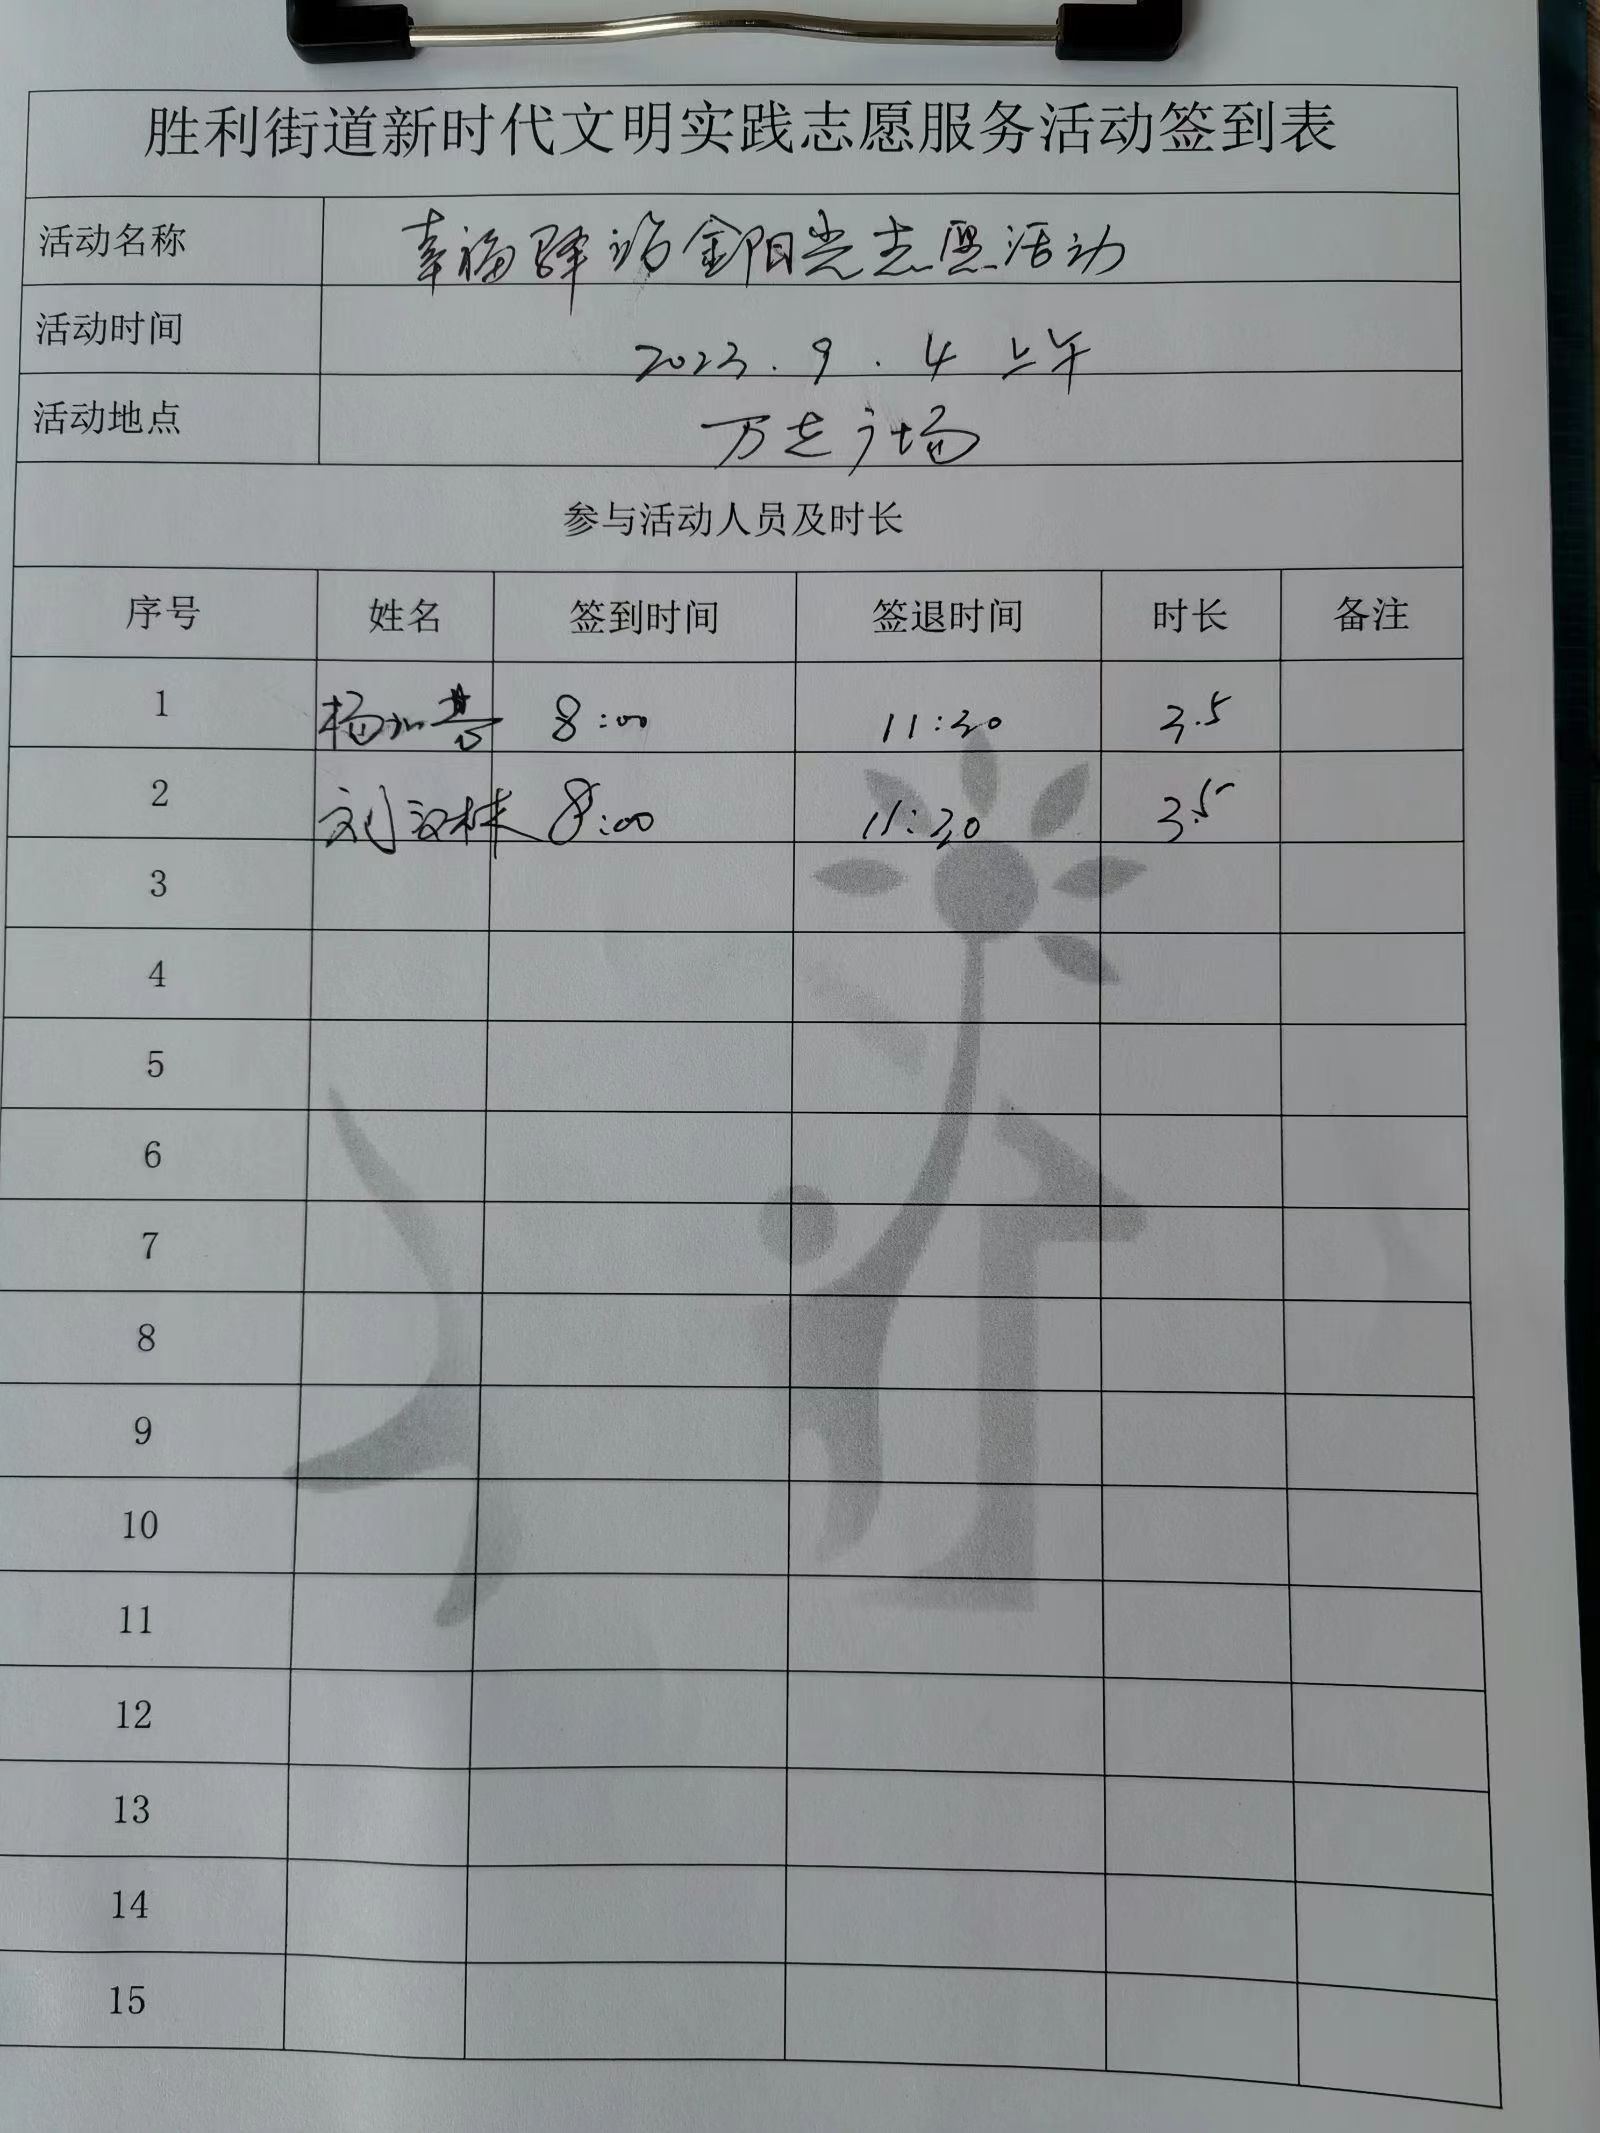 胜利街道新时代文明实践志愿服务活动签到表
活动名称 幸福驿站金阳光志愿活动
活动时间 2023.9.4 上午
活动地点 万达广场
参与活动人员及时长
序号 姓名 签到时间 签退时间 时长 备注
1 杨 8:00 11:30 3.5
2 刘汉林 8:00 11:30 3.5
3
4
5
6
7
8
9
10
11
12
13
14
15